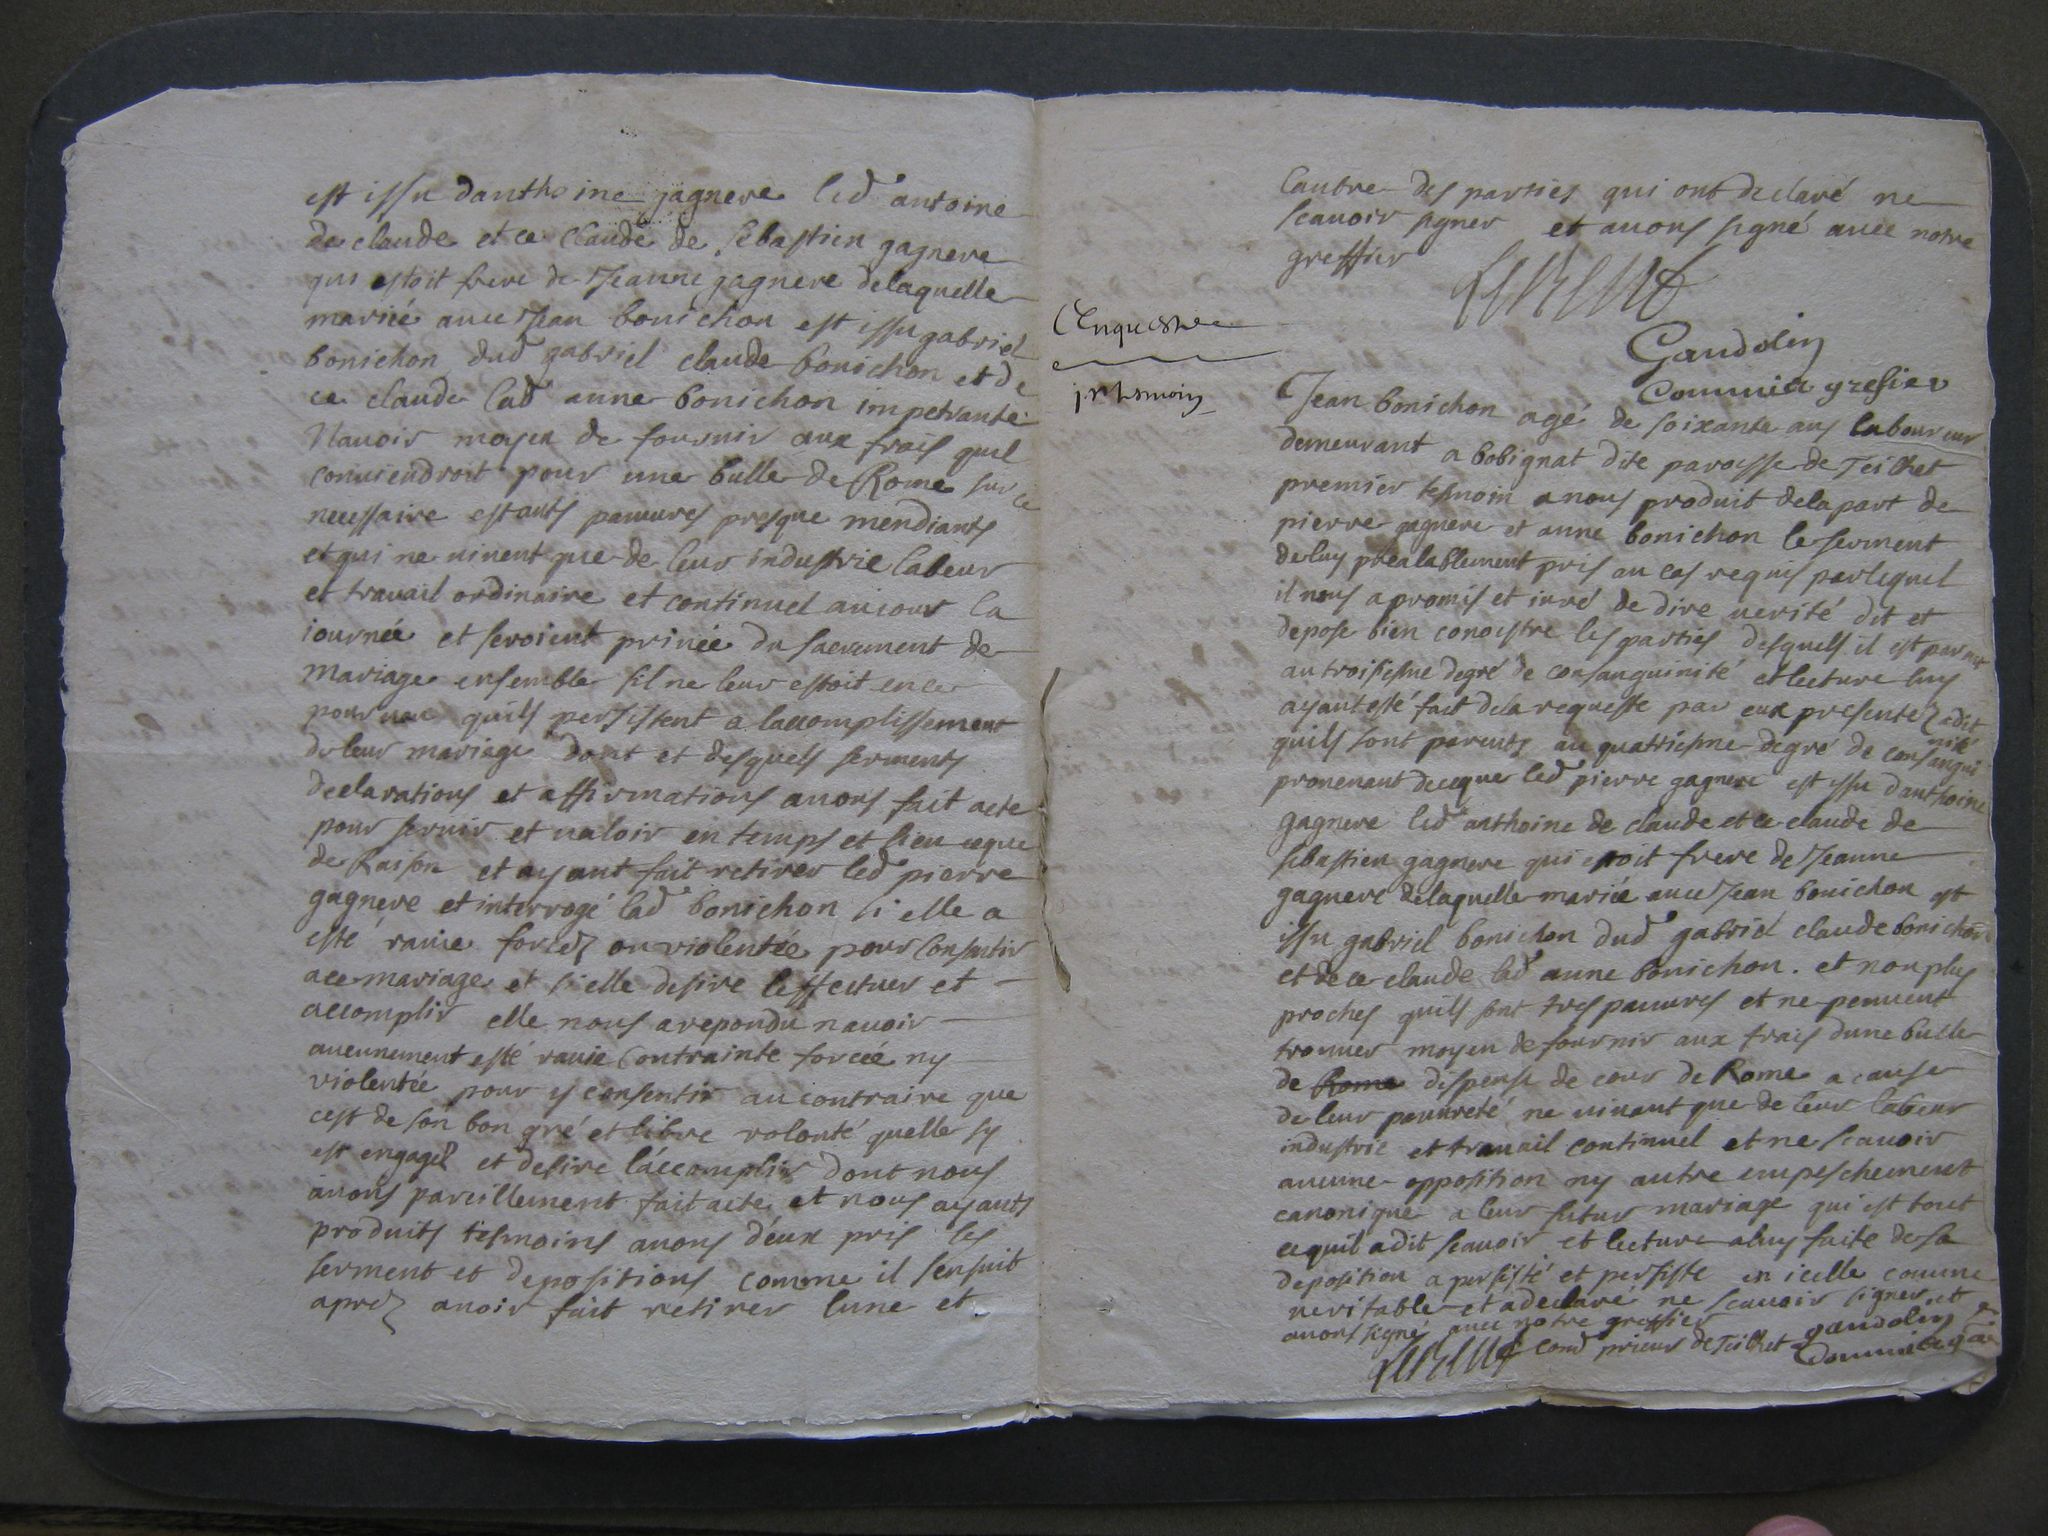 est issu danthoine gagnere led antoine
de claude et ce claude de sebastien gagnere
qui estoit frere de Jeanne gagnere delaquelle
mariée avec Jean bonichon est issu gabriel
bonichon dud gabriel claude bonichon et de
ce claude lad anne bonichon impetrante
Navoir moyen de fournir aux frais quil
conviendroit pour une bulle de Rome sur ce
necessaire estants pauvres presque mendiants
et qui ne vivent que de leur industrie labeur
et travail ordinaire et continuel au jour la
journée et seroient privée du sacrement de
mariage ensemble sil ne leur estoit en ce
pourveu quils persistent a laccomplissement
de leur mariage dont et desquels serments
declarations et affirmations avons fait acte
pour servir et valoir en temps et lieu ceque
de Raison et ayant fait retirer led pierre
gagnere et interrogé lad bonichon si elle a
esté ravie forcez ou violentée pour Consentir
ace mariage et si elle desire leffectuer et
accomplir elle nous a repondu navoir
aucunement esté ravie Contrainte forcée ny
violentée pour y consentir au contraire que
cest de son bon gré et libre volonté quelle sy
est engagez et desire láccomplir dont nous
avons pareillement fait acte et nous ayants
produits tesmoins avons déux pris les
serment et depositions comme il sensuit
aprez avoir fait retirer lune et
lautre des parties qui ont declaré ne
scavoir signer et avons signé avec notre
greffier
Gandolin
Commis grefier
Enqueste
pr tesmoin
Jean bonichon agé de soixante ans laboureur
demeurant a bobignat dite paroisse de Teilhet
premier tesmoin a nous produit delapart de
pierre gagnere et anne bonichon le serment
de luy prealablement pris au cas requis parlequel
il nous a promis et juré de dire verité dit et
depose bien conoistre les parties desquels il est parent
au troisiesme degré de consanguinité et lecture luy
ayant esté fait dela requeste par eux presentez a dit
quils sont parents au quatriesme degré de consangui
nité
provenant deceque led pierre gagnere est issu danthoine
gagnere led anthoine de claude et ce claude de
sebastien gagnere qui estoit frere de Jeanne
gagnere delaquelle mariée avec Jean bonichon est
issu gabriel bonichon dud gabriel claude bonichon
et de ce claude lad anne bonichon . et non plus
proches quils sont tres pauvres et ne peuvent
trouver moyen de fournir aux frais dune bulle
de Rome dispense de cour de Rome a cause
de leur pauvreté ne vivant que de leur labeur
industrie et travail continuel et ne scavoir
aucune opposition ny autre empeschement
canonique a leur futur mariage qui est tout
cequil a dit scavoir et lecture aluy faite de sa
deposition a persisté et persiste en icelle comme
veritable et a declaré ne scavoir signer et
avons signé avec notre greffier
prieur de Teilhet gandolin